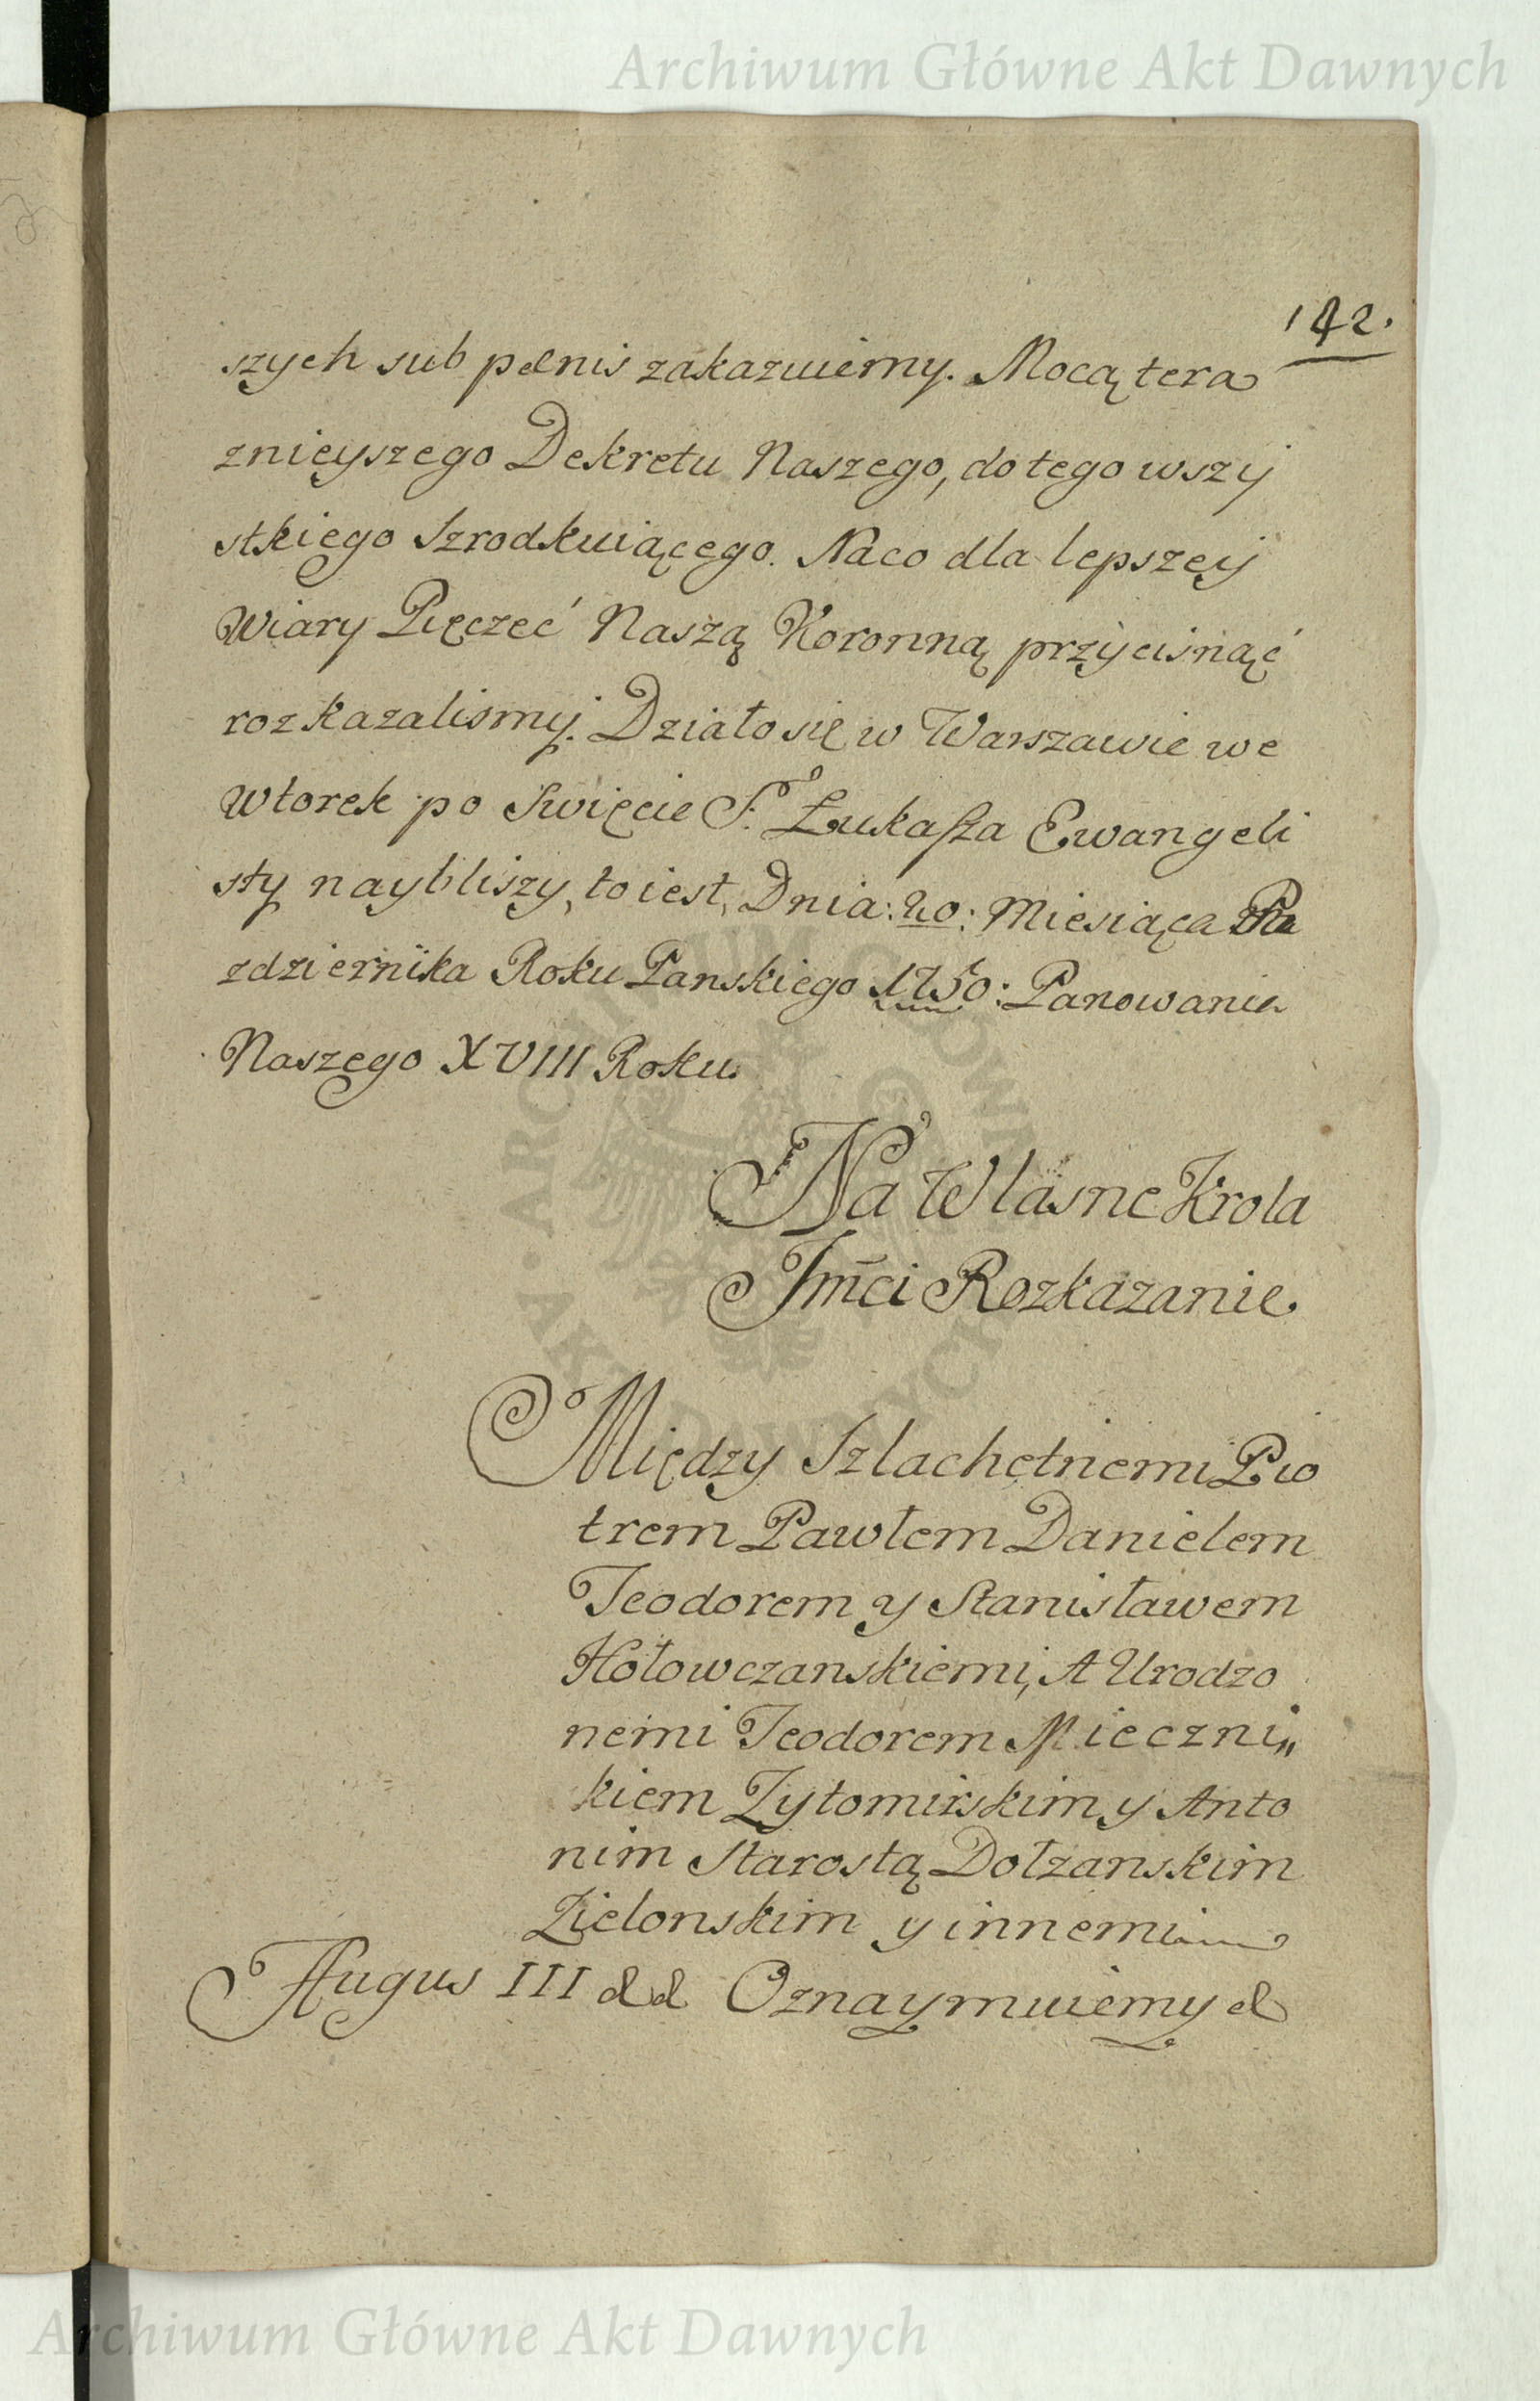 Archiwum Główne Akt Dawnych
142.
szych sub pœnis zakazuiemy. Mocą tera
znieyszego Dekretu Naszego, do tego wszy
stkiego Szrodkuiącego. Na co dla lepszey
Wiary Pięczęć Naszą Koronną przycisnąć
rozkazalismy. Działo się w Warszawie we
Wtorek po Swięcie S. Łukasza Ewangeli
sty naybliszy, to iest, Dnia: 20: Miesiąca Pa
zdziernika Roku Panskiego 1750: Panowania
Naszego XVIII Roku.
Na Własne Krola
Jmci Rozkazanie.
Między Szlachetnemi Pio
trem Pawłem Danielem
Teodorem y Stanisławem
Hołowczanskiemi, A Urodzo
nemi Teodorem Mieczni„
kiem Zytomirskim y Anto
nim Starostą Dołzanskim
Zielonskim y innemi
Augus III &c &c Oznaymuiemy &c
ARCHIWUM GŁÓWNE AKT DAWNYCH
Archiwum Główne Akt Dawnych